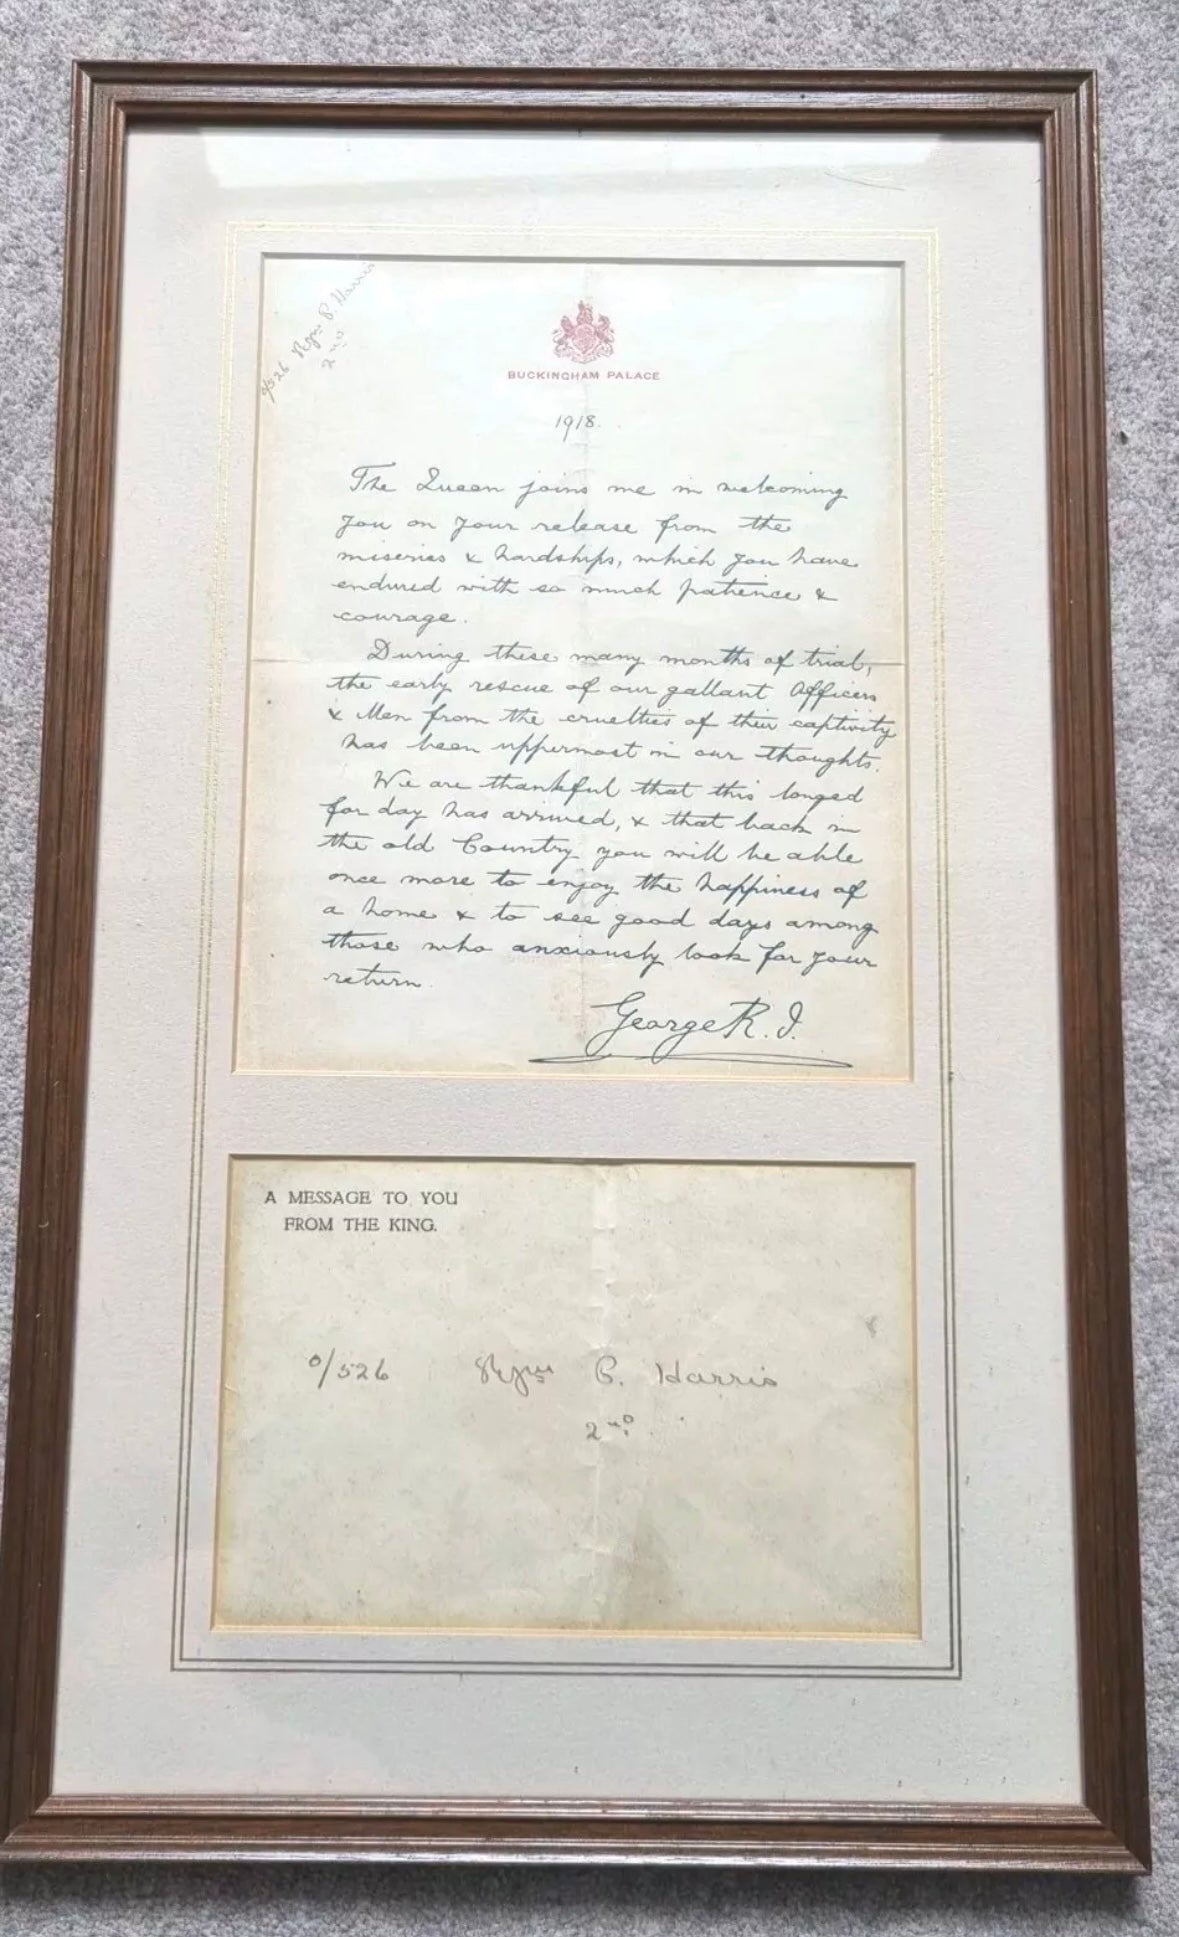 9/526 Rfm P. Harris
2nd
BUCKINGHAM PALACE
1918.
The Queen joins me in welcoming
you on your release from the
miseries & hardships, which you have
endured with so much patience &
courage.
During these many months of trial,
the early rescue of our gallant Officers
& Men from the cruelties of their captivity
has been uppermost in our thoughts.
We are thankful that this longed
for day has arrived, & that back in
the old Country you will be able
once more to enjoy the happiness of
a home & to see good days among
those who anxiously look for your
return.
George R.I.
A MESSAGE TO YOU
FROM THE KING.
/526 Harris
2nd